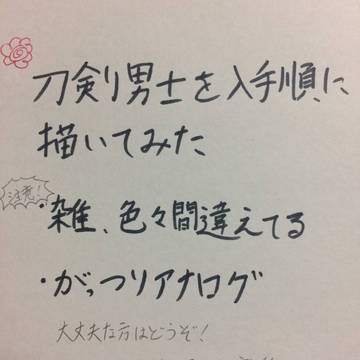 刀剣男士を入手順に
描いてみた
注意!
・雑、色々間違えてる
・がっつりアナログ
大丈夫な方はどうぞ!